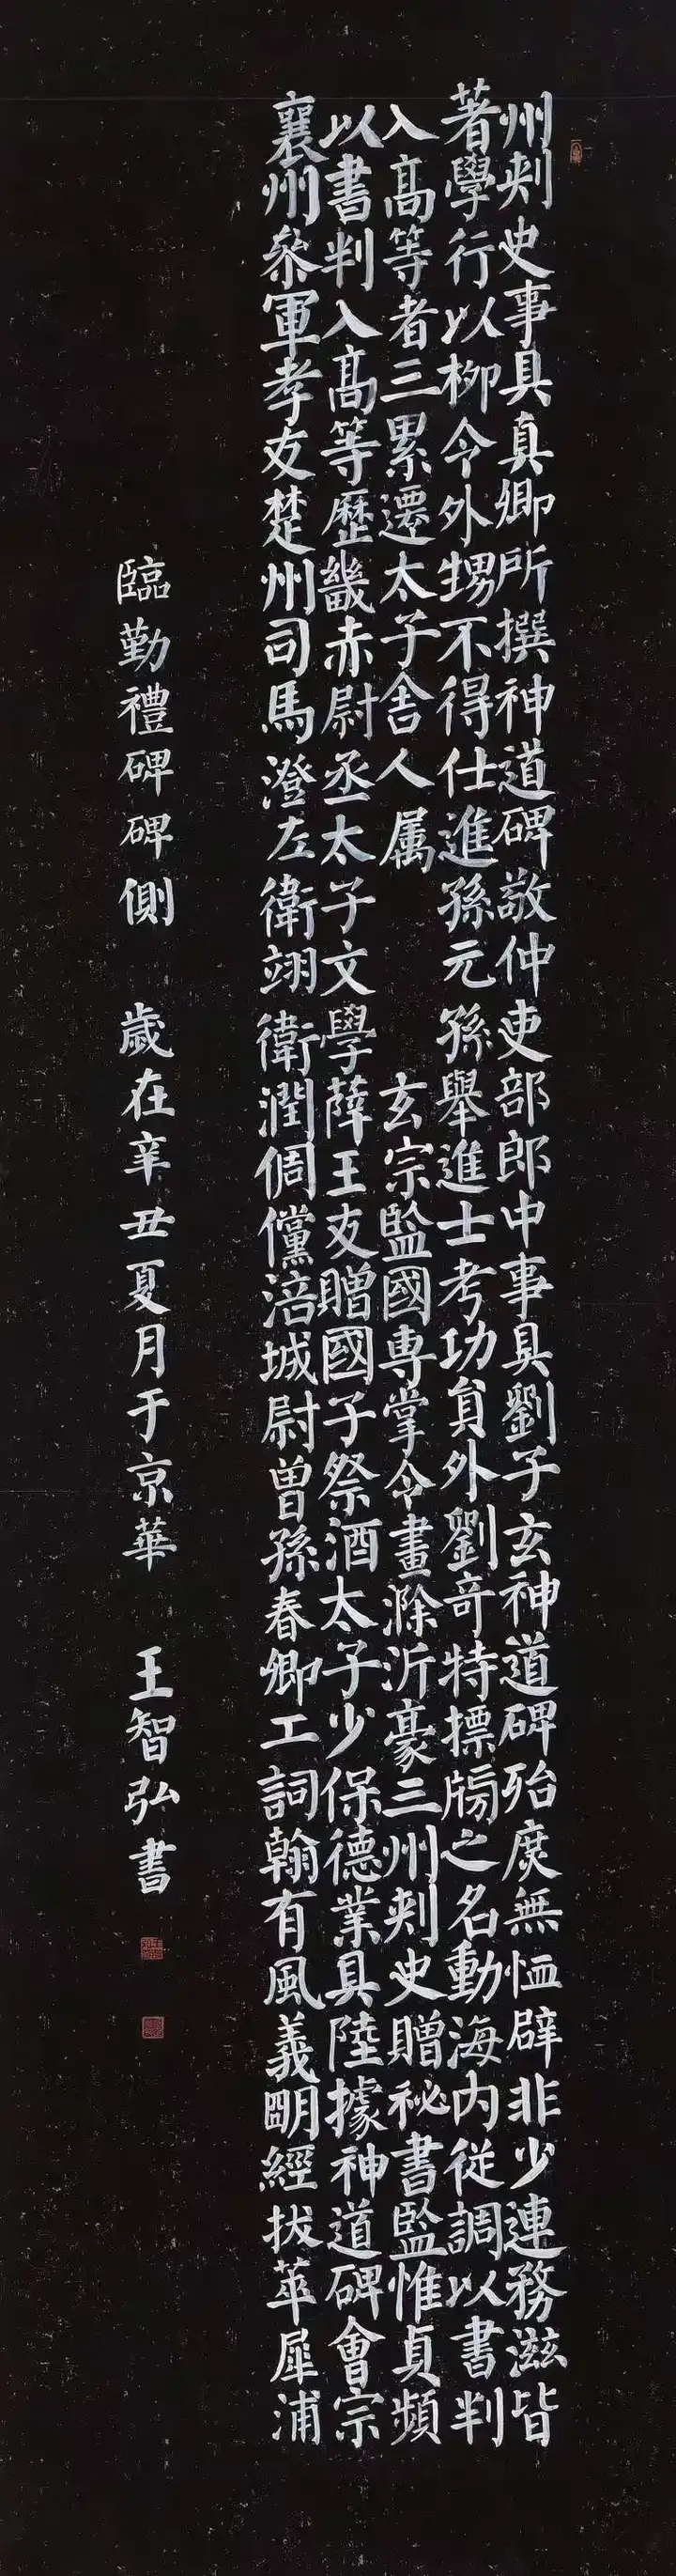 州刺史事具真卿所撰神道碑敬仲吏部郎中事具劉子玄神道碑殆庶無恤辟非少連務滋皆
著學行以柳令外甥不得仕進孫元孫舉進士考功員外劉奇特摽牓之名動海内從調以書判
入高等者三累遷太子舍人属 玄宗監國專掌令畫滁沂豪三州刺史贈秘書監惟貞頻
以書判入高等歷畿赤尉丞太子文學薛王友贈國子祭酒太子少保德業具陸據神道碑會宗
襄州叅軍孝友楚州司馬澄左衛翊衛潤倜儻涪城尉曽孫春卿工詞翰有風義明經拔萃犀浦
臨勤禮碑碑側 歲在辛丑夏月于京華 王智弘書